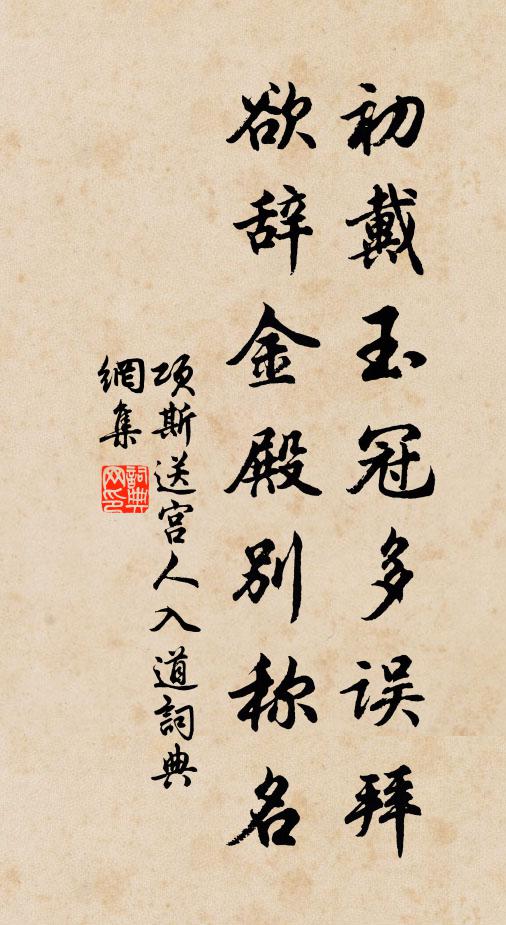 初戴玉冠多误拜
欲辞金殿别称名
项斯送宫人入道詞典
網集
詞典
网印